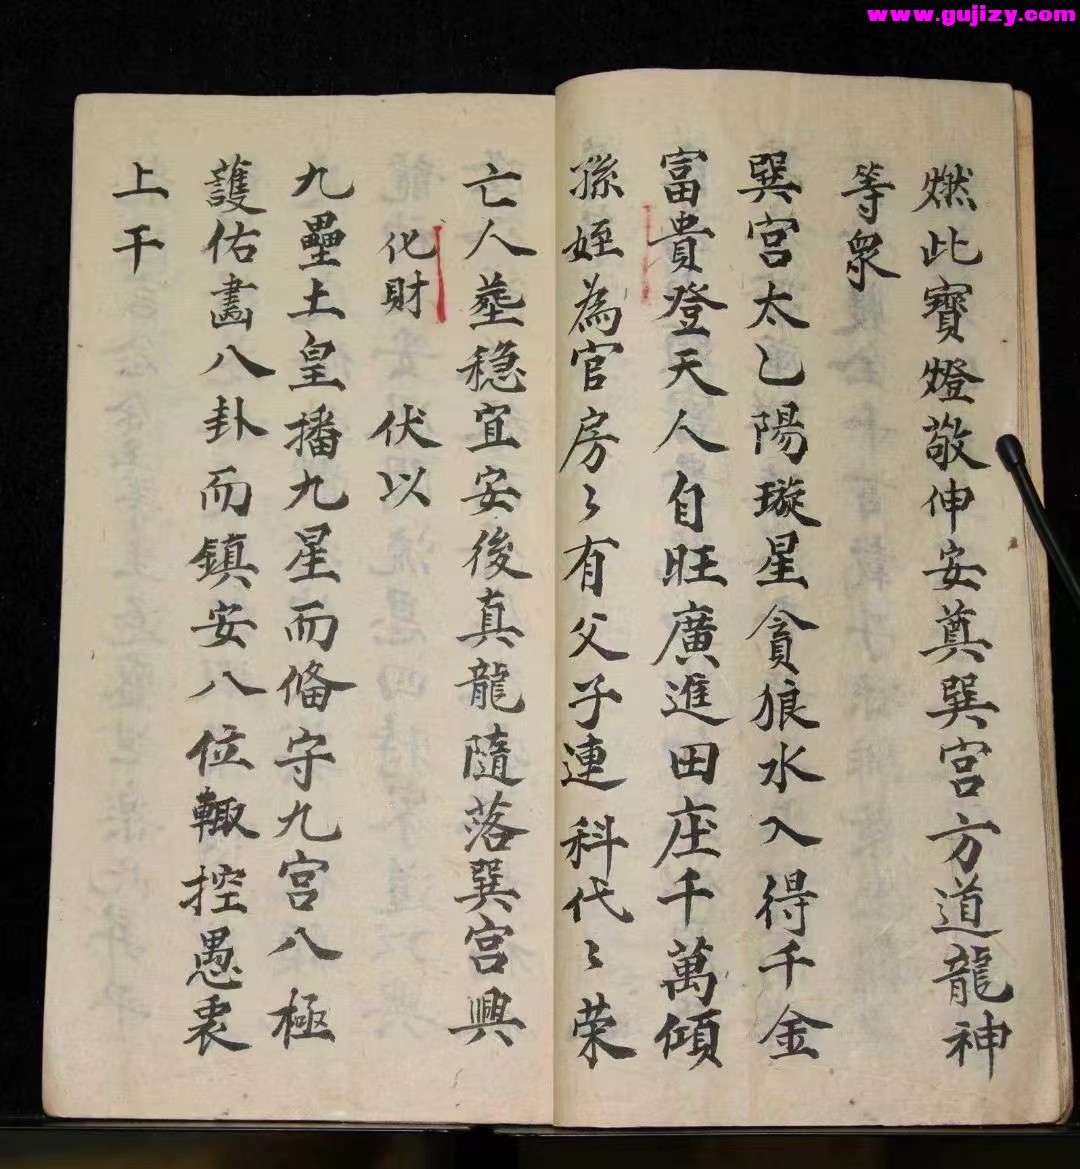 www.gujizy.com
燃此寶燈敬伸安奠巽宫方道龍神
等衆
巽宫太乙陽璇星貪狼水入得千金
富貴登天人自旺廣進田庄千萬傾
孫姪為官房〻有父子連科代〻荣
亡人塟穏宜安後真龍隨落巽宫興
化財 伏以
九壘土皇播九星而俻守九宫八極
護佑畵八卦而鎮安八位輙控愚衷
上干